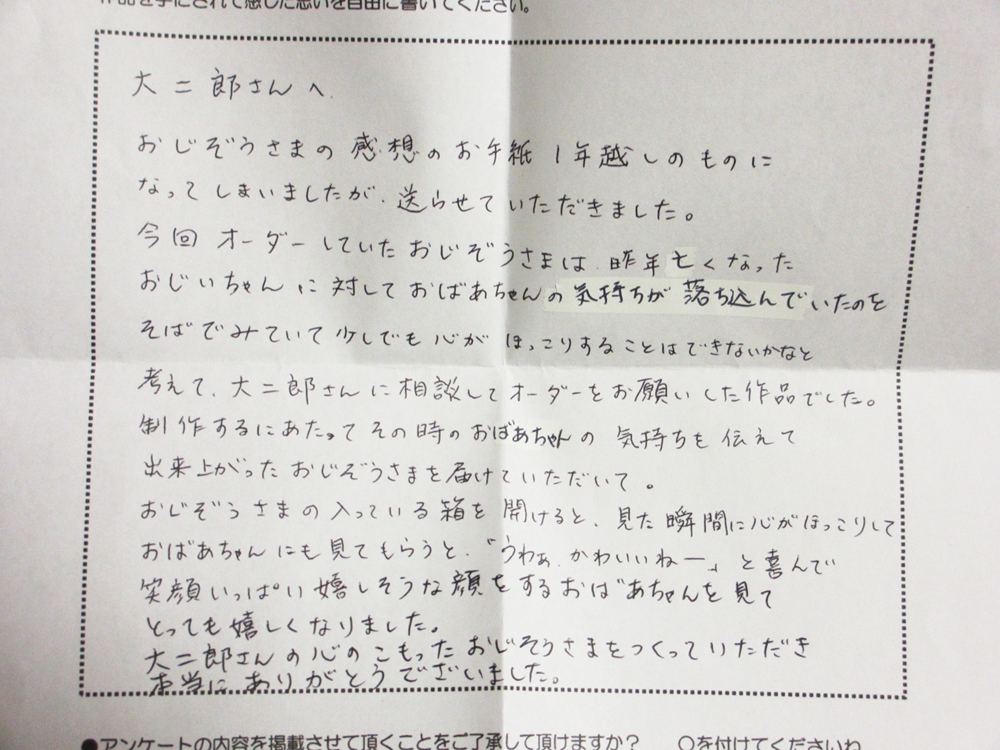 作品を手にされて感じた思いを自由に書いてください。
大二郎さんへ
おじぞうさまの感想のお手紙1年越しのものに
なってしまいましたが、送らせていただきました。
今回オーダーしていたおじぞうさまは、昨年亡くなった
おじいちゃんに対しておばあちゃんの気持ちが落ち込んでいたのを
そばでみていて少しでも心がほっこりすることはできないかなと
考えて、大二郎さんに相談してオーダーをお願いした作品でした。
制作するにあたってその時のおばあちゃんの気持ちを伝えて
出来上がったおじぞうさまを届けていただいて。
おじぞうさまの入っている箱を開けると、見た瞬間に心がほっこりして
おばあちゃんにも見てもらうと、「うわぁ、かわいいねー」と喜んで
笑顔いっぱい嬉しそうな顔をするおばあちゃんを見て
とっても嬉しくなりました。
大二郎さんの心のこもったおじぞうさまをつくっていただき
本当にありがとうでございました。
●アンケートの内容を掲載させて頂くことをご了承して頂けますか? ○を付けてくださいね